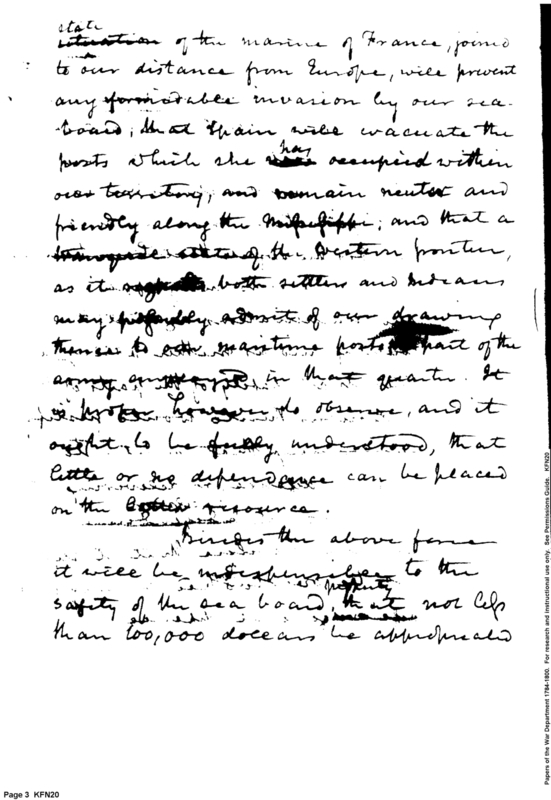 state
situation of the marine of France, joined
to our distance from Europe, will prevent
any formidable invasion by our sea-
board; that Spain will evacuate the
has
posts which she occupied within
our territory, and remain neuter and
friendly along the Mississippi; and that a
tranquil state of the Western frontier,
as it both settlers and Indians
may probably admit of our drawing
thence to our maritime posts part of the
army employed in that quarter. It
is proper however to observe, and it
ought to be fully understood, that
little or no dependence can be placed
on the latter resource.
Besides the above force
it will be indispensible to the
safety of the sea board, that not less
than 100,000 dollars be appropriated
Page 3 KFN20
Papers of the War Department 1784-1800. For research and instructional use only. See Permissions Guide. KFN20